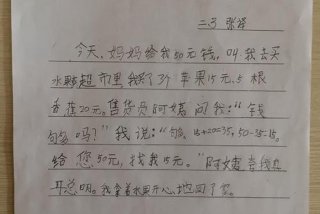 二3 张译
今天，妈妈给我50元钱，叫我去买
水果超市里我买了3个苹果15元，5根
香蕉20元。售货员阿姨问我：“钱
句多吗？”我说：“句多，15+20=35，50-35=15。
给您50元，找我15元。”阿姨夸我真
开总明。我拿着水果开心地回了家。